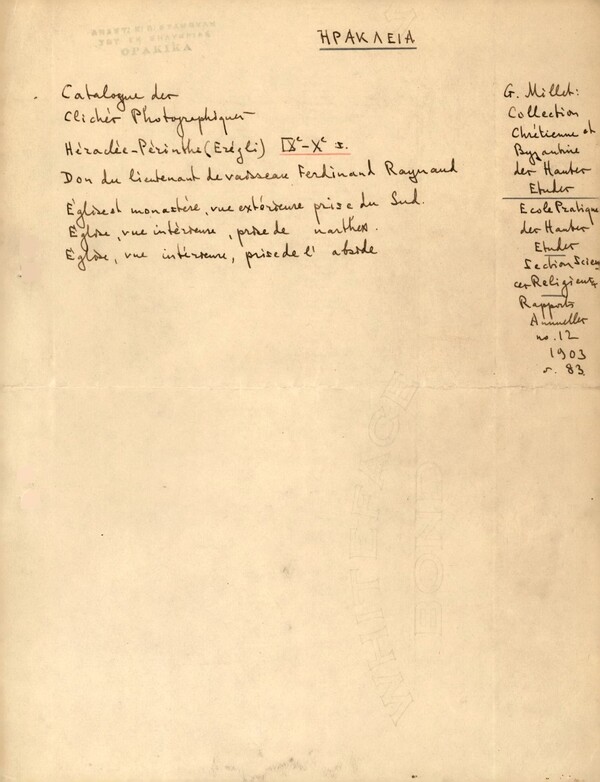 ΘΡΑΚΙΚΑ
ΗΡΑΚΛΕΙΑ
Catalogue des
Clichés Photographiques
Héraclée-Périnthe (Erégli) IXe-Xe s.
Don du lieutenant de vaisseau Ferdinand Raynaud
Église et monastère, vue extérieure prise du Sud.
Église, vue intérieure, prise de narthex.
Église, vue intérieure, prise de l' abside
G. Millet:
Collection
Chrétienne et
Byzantine
des Hautes
Etudes
Ecole Pratique
des Hautes
Etudes
Section Scien
ces Religieuses
Rapports
Annuelles
no. 12
1903
σ. 83
WHITEFACE
BOND